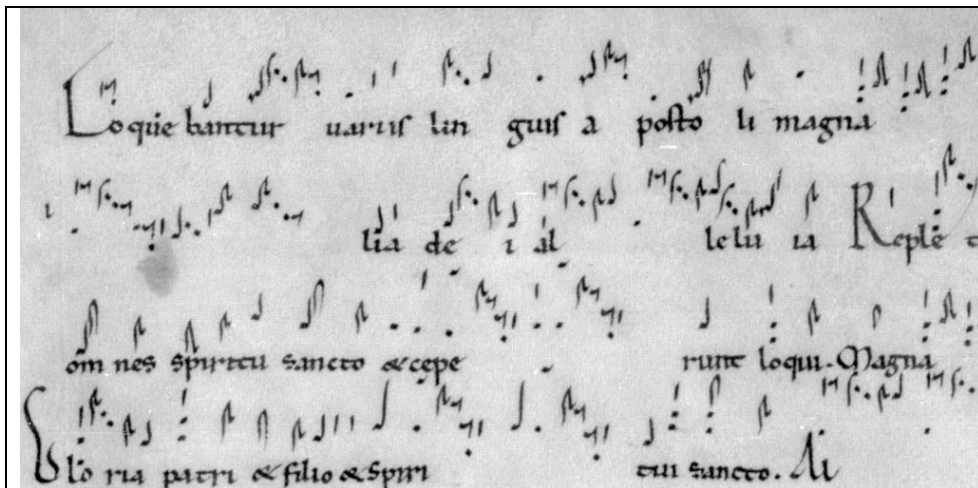 Loque bantur uariis lin guis a posto li magna
lia de i al lelu ia Reple t
om nes spiritu sancto & cepe runt loqui. Magna
Glo ria patri & filio & spiri tui sancto. Al